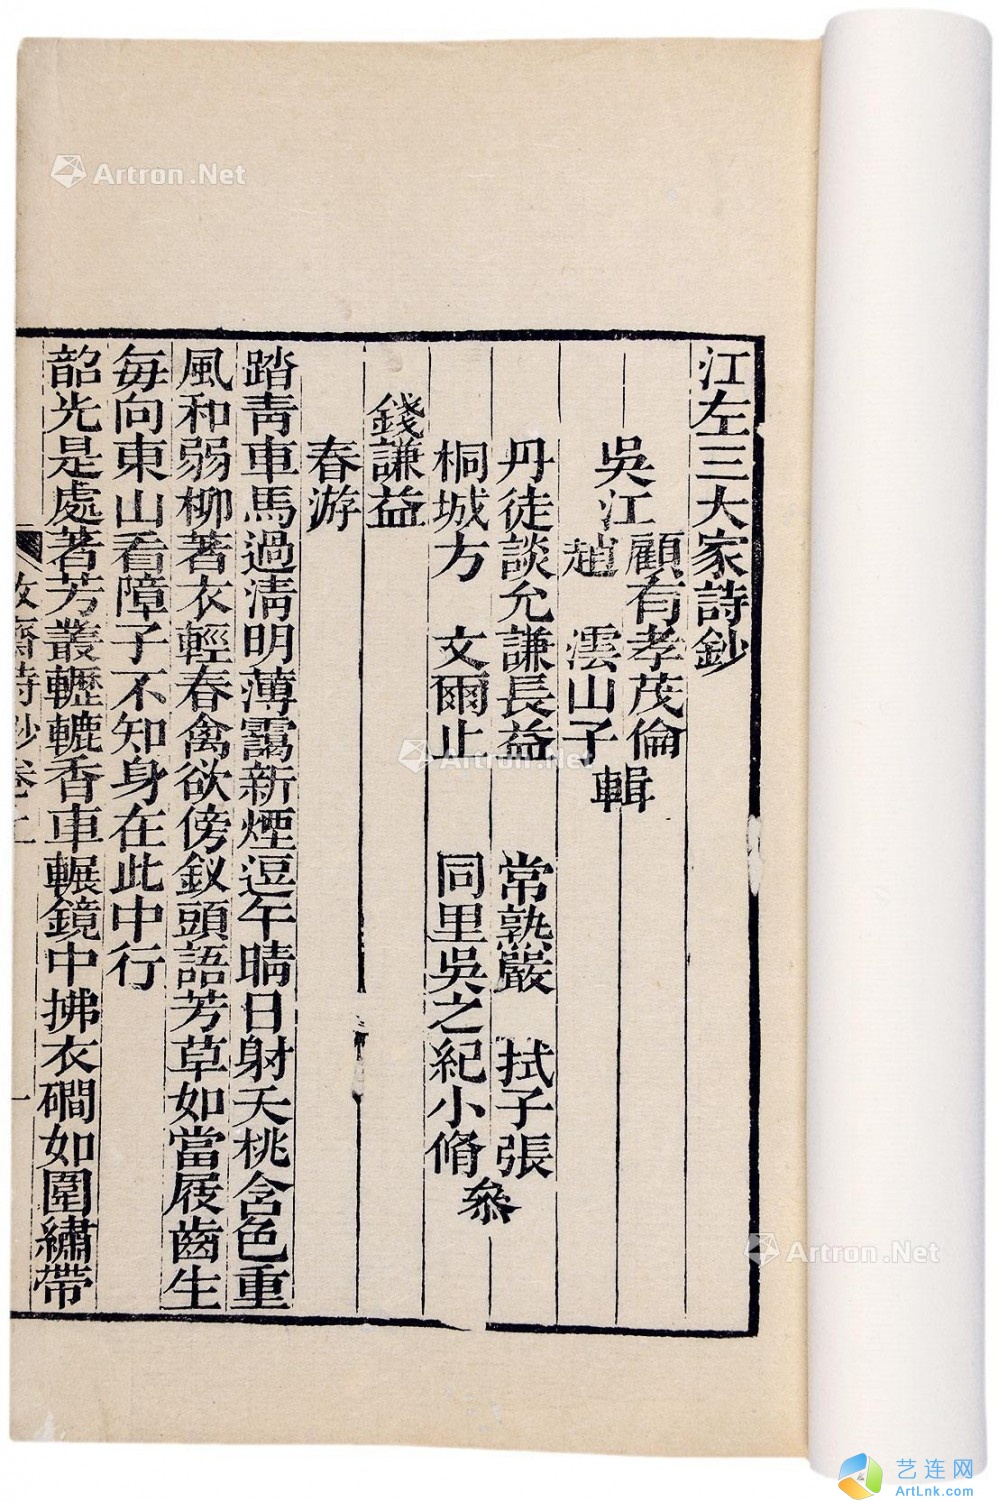 江左三大家詩鈔
吳江
顧有孝茂倫
趙 澐山子
輯
丹徒談允謙長益 常熟嚴 拭子張
桐城方 文爾止 同里吳之紀小脩
叅
錢謙益
春游
踏靑車馬過淸明薄靄新煙逗午晴日射夭桃含色重
風和弱柳著衣輕春禽欲傍釵頭語芳草如當屐齒生
每向東山看障子不知身在此中行
韶光是處著芳叢轣轆香車輾鏡中拂衣磵如圍繡帶
牧齋詩鈔卷上
一
Artron.Net
Artron.Net
Artron.Net
艺连网
ArtLnk.com